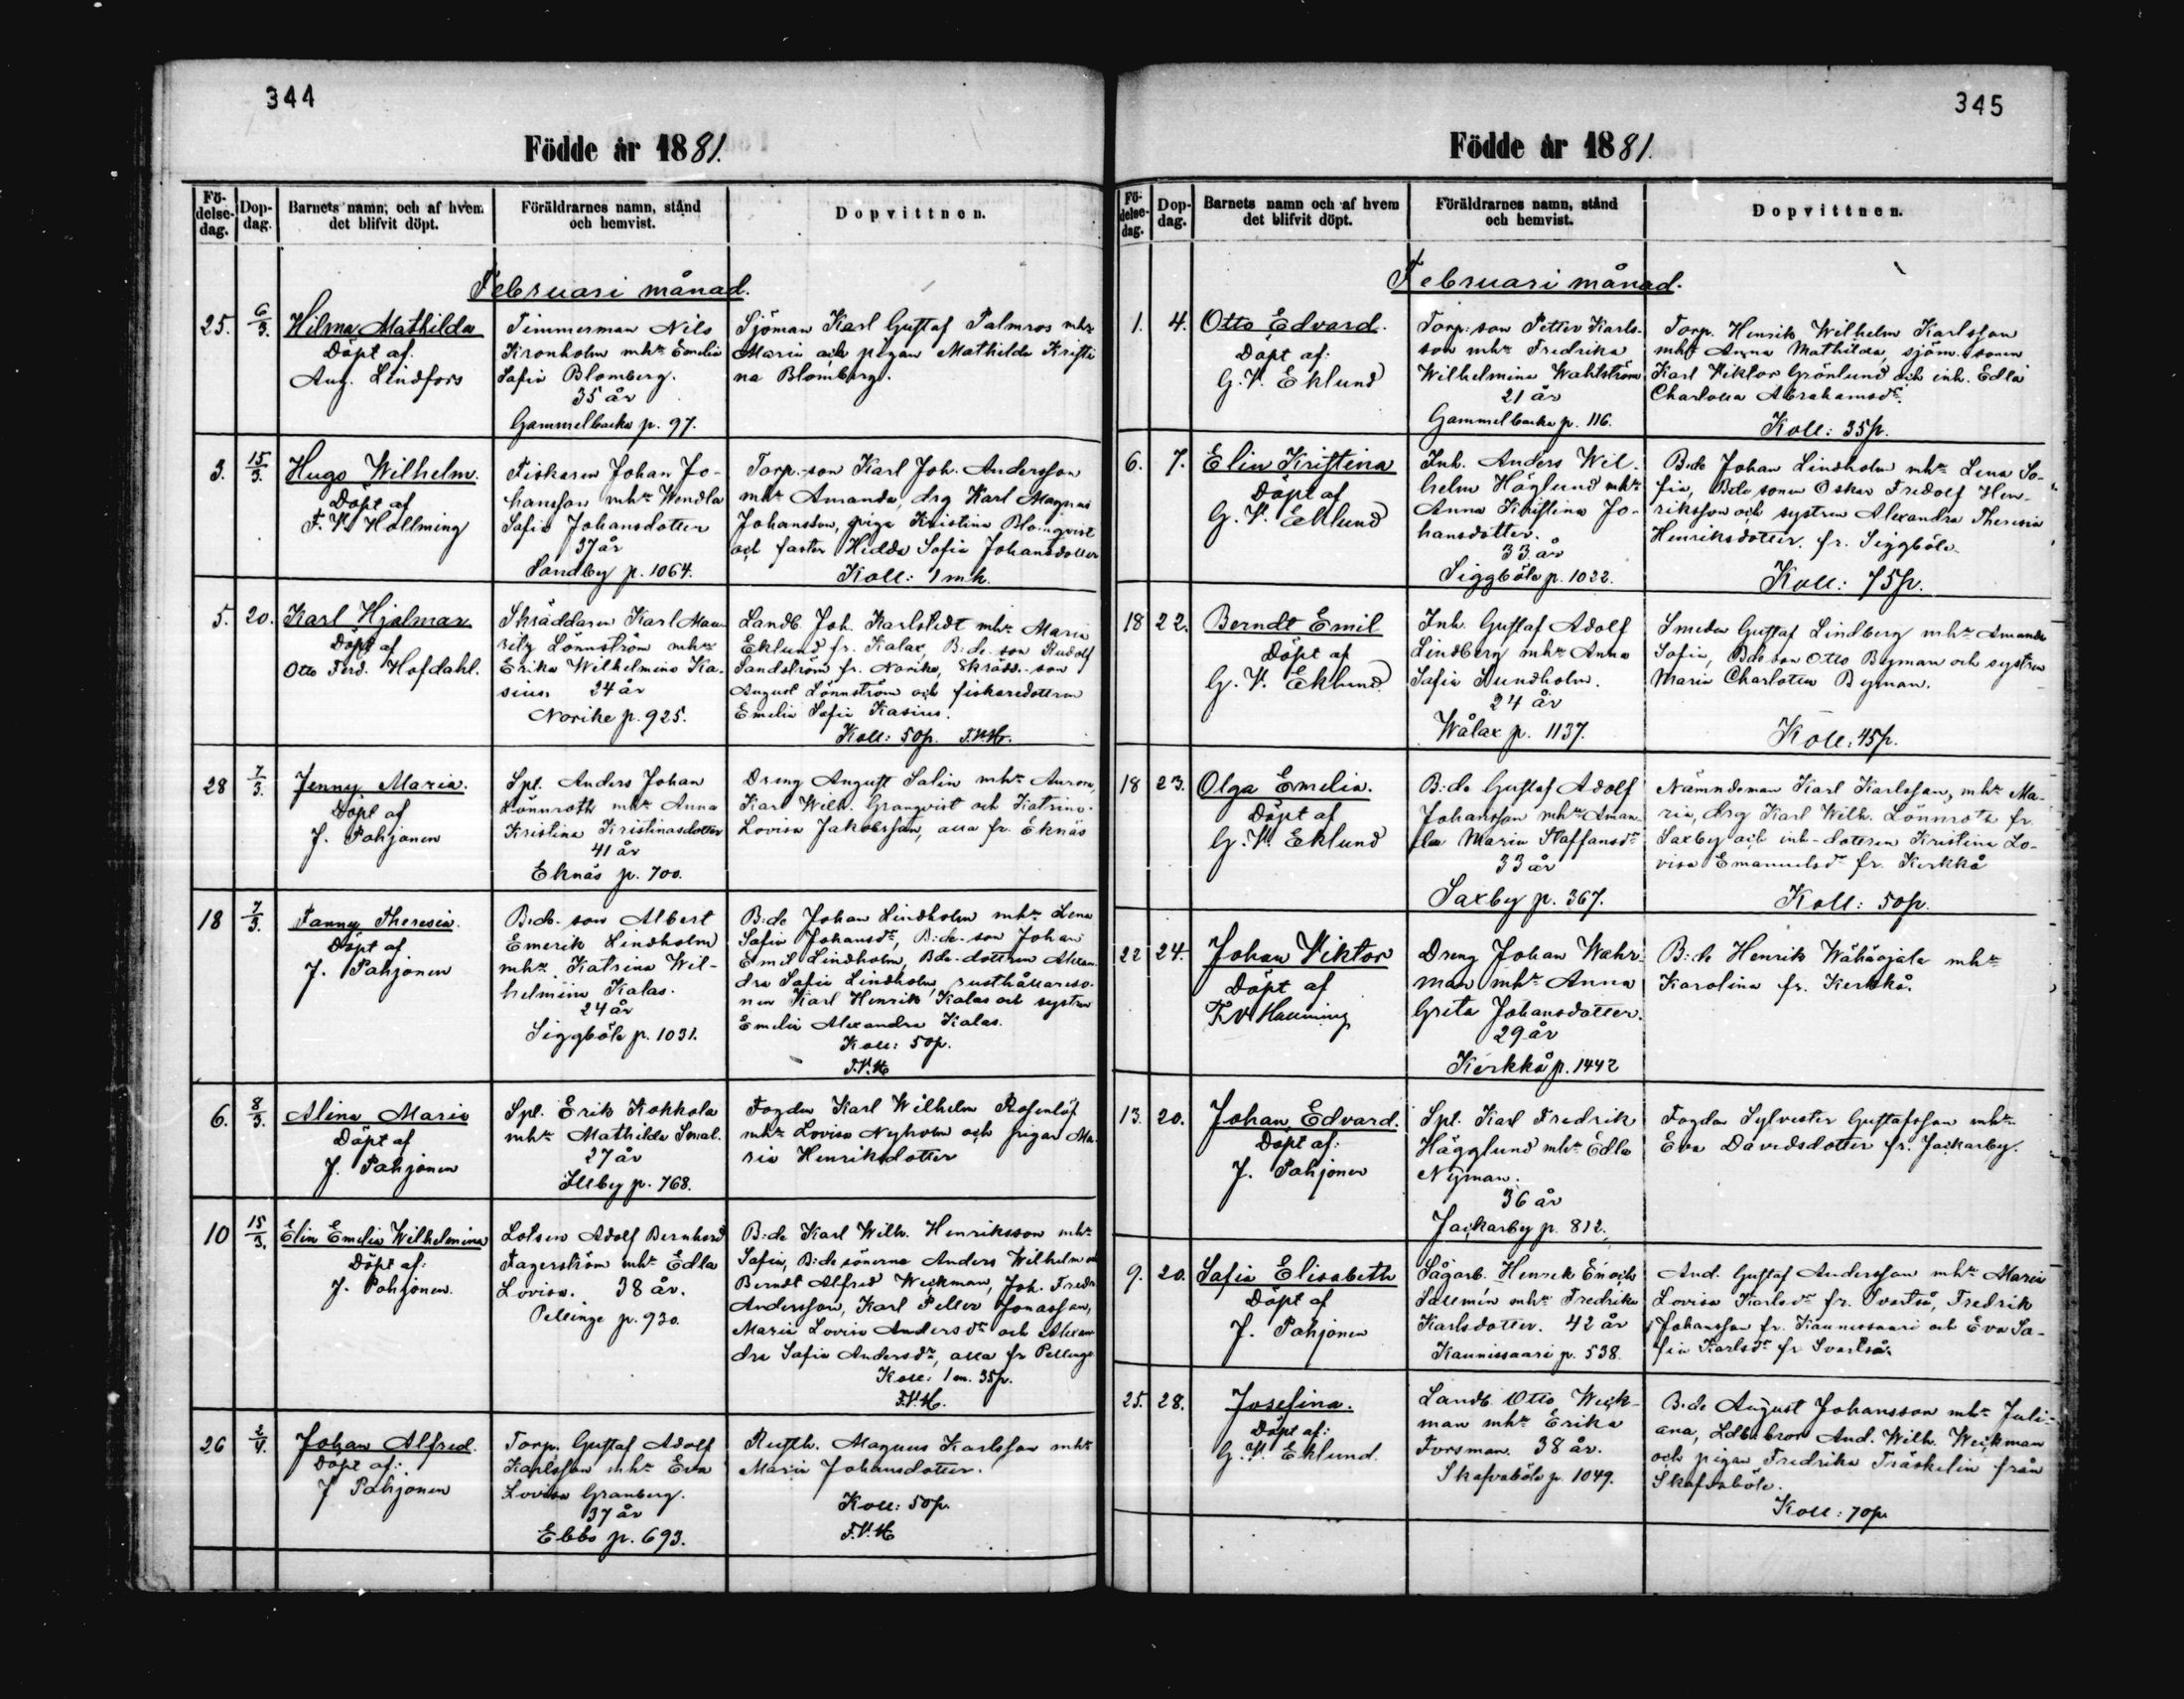 344
Födde år 1881.
Fö-
delse-
dag.
Dop-
dag.
Barnets namn, och af hvem
det blifvit döpt.
Föräldrarnes namn, stånd
och hemvist.
Dopvittnen.
Februari månad.
25.
6/3.
Hilma Mathilda
Döpt af.
Aug. Lindfors
Timmerman Nils
Kronholm mhr Emelia
Safia Blomberg.
35 år
Gammelbacka p. 97.
Sjöman Karl Gustaf Palmros mhr
Maria och pigan Mathilda Kristi
na Blomberg.
3.
15/3.
Hugo Wilhelm.
Döpt af
F. V. Hallming
Fiskaren Johan Jo-
hansson mhr Wendla
Safia Johansdotter
37 år
Sandby p. 1064.
Torp. son Karl Joh. Andersson
mhr Amanda, drg Karl Magnus
Johansson, piga Kristina Blomqvist
och faster Hedda Sofia Johansdotter
Koll: 1 mk.
5.
20.
Karl Hjalmar
Döpt af
Otto Ferd. Hofdahl.
Skräddaren Karl Mau
ritz Lönnström mhr
Erika Wilhelmina Ka-
sius. 24 år
Norike p. 925.
Landb. Joh. Karlstedt mhr Maria
Eklund fr. Kalax, B:de son Rudolf
Sandström fr. Norike, Skrädd. son
August Lönnström och fiskaredottren
Emelia Safia Kasius.
Koll: 50 p. F.V.H.
28
7/3.
Jenny Maria.
Döpt af
J. Pahjonen
Spl. Anders Johan
Lönnroth mhr Anna
Kristina Kristinasdotter
41 år
Eknäs p. 700.
Dreng August Salin mhr Aurora,
Karl Wilh. Granqvist och Katrina
Lovisa Jakobsson, alla fr. Eknäs
18
7/3.
Fanny Theresia.
Döpt af
J. Pahjonen
B:de son Albert
Emerik Lindholm
mhr Katrina Wil-
helmina Kalas.
24 år
Siggböle p. 1031.
B:de Johan Lindholm mhr Lena
Safia Johansdr, B:de-son Johan
Emil Lindholm, Bde-dottren Alexan-
dra Safia Lindholm, rusthållareso-
nen Karl Henrik Kalas och systren
Emelia Alexandra Kalas.
Koll: 50 p.
F.V.H
6.
8/3.
Alina Maria
Döpt af
J. Pahjonen
Spl. Erik Kokkola
mhr Mathilda Smal.
27 år
Illby p. 768.
Fogden Karl Wilhelm Rosenlöf
mhr Lovisa Nyholm och pigan Ma-
ria Henriksdotter
10
15/3.
Elin Emelia Wilhelmina
Döpt af:
J. Pahjonen.
Lotsen Adolf Bernhard
Fagerström mhr Edla
Lovisa. 38 år.
Pellinge p. 930.
B:de Karl Wilh. Henriksson mhr
Safia, B:de sönerna Anders Wilhelm och
Berndt Alfred Weckman, Joh. Fredr.
Andersson, Karl Petter Jonasson,
Maria Lovisa Andersdr och Alexan
dra Safia Andersdr, alla fr Pellinge
Koll: 1 m. 35 p.
F.V.H.
26
2/4.
Johan Alfred.
Döpt af:
J Pahjonen
Torp. Gustaf Adolf
Karlsson mhr Eva
Lovisa Granberg.
37 år
Ebbo p. 693.
Rusth. Magnus Karlsson mhr
Maria Johansdotter.
Koll: 50 p.
F.V.H
345
Födde år 1881.
Fö-
delse-
dag.
Dop-
dag.
Barnets namn och af hvem
det blifvit döpt.
Föräldrarnes namn, stånd
och hemvist.
Dopvittnen.
Februari månad.
1.
4.
Otto Edvard.
Döpt af:
G. V. Eklund
Torp: son Petter Karls-
son mhr Fredrika
Wilhelmina Wahlström
21 år
Gammelbacka p. 116.
Torp. Henrik Wilhelm Karlsson
mhr Anna Mathilda, sjöm. sonen
Karl Viktor Grönlund och inh. Edla
Charlotta Abrahamsdr.
Koll: 35 p.
6.
7.
Elin Kristina
Döpt af
G. V. Eklund
Inh. Anders Wil-
helm Höglund mhr
Anna Kristina Jo-
hansdotter.
33 år
Siggböle p. 1022.
B:de Johan Lindholm mhr Lena So-
fia, Bde sonen Oskar Fredolf Hen-
riksson och systren Alexandra Theresia
Henriksdotter. fr. Siggböle.
Koll: 75 p.
18
22.
Berndt Emil
Döpt af
G. V. Eklund.
Inh. Gustaf Adolf
Lindberg mhr Anna
Safia Sundholm.
24 år
Wålax p. 1137.
Smeden Gustaf Lindberg mhr Amanda
Sofia, Bde son Otto Byman och systren
Maria Charlotta Byman.
Koll: 45 p.
18
23.
Olga Emelia.
Döpt af
G. V. Eklund
B:de Gustaf Adolf
Johansson mhr Aman-
da Maria Staffansdr
33 år
Saxby p. 367.
Nämndeman Karl Karlsson, mhr Ma-
ria, drg Karl Wilh. Lönnroth fr
Saxby och inh-dottren Kristina Lo-
visa Emanuelsdr fr. Kerkkå
Koll: 50 p.
22
24.
Johan Viktor
Döpt af
F.V Hallming
Dreng Johan Wahr-
man mhr Anna
Greta Johansdotter.
29 år
Kerkkå p. 1442
B:de Henrik Wähäojala mhr
Karolina fr. Kerkkå.
13.
20.
Johan Edvard.
Döpt af:
J. Pahjonen
Spl. Karl Fredrik
Hägglund mhr Edla
Nyman.
36 år
Jackarby p. 812.
Fogden Sylvester Gustafsson mhr
Eva Davidsdotter fr. Jackarby.
9.
20.
Safia Elisabeth
Döpt af
J. Pahjonen
Sågarb. Henrik Enoch
Sallmén mhr Fredrika
Karlsdotter. 42 år
Kaunissaari p. 538.
And. Gustaf Andersson mhr Maria
Lovisa Karlsdr fr. Svartså, Fredrik
Johansson fr. Kaunissaari och Eva Sa-
fia Karlsdr fr Svartså.
25.
28.
Josefina.
Döpt af:
G. V. Eklund.
Landb. Otto Weck-
man mhr Erika
Forsman. 38 år.
Skafvaböle p. 1049.
B:de August Johansson mhr Juli-
ana, Ldb. bror And. Wilh. Weckman
och pigan Fredrika Träskelin från
Skafvaböle.
Koll: 70 p.